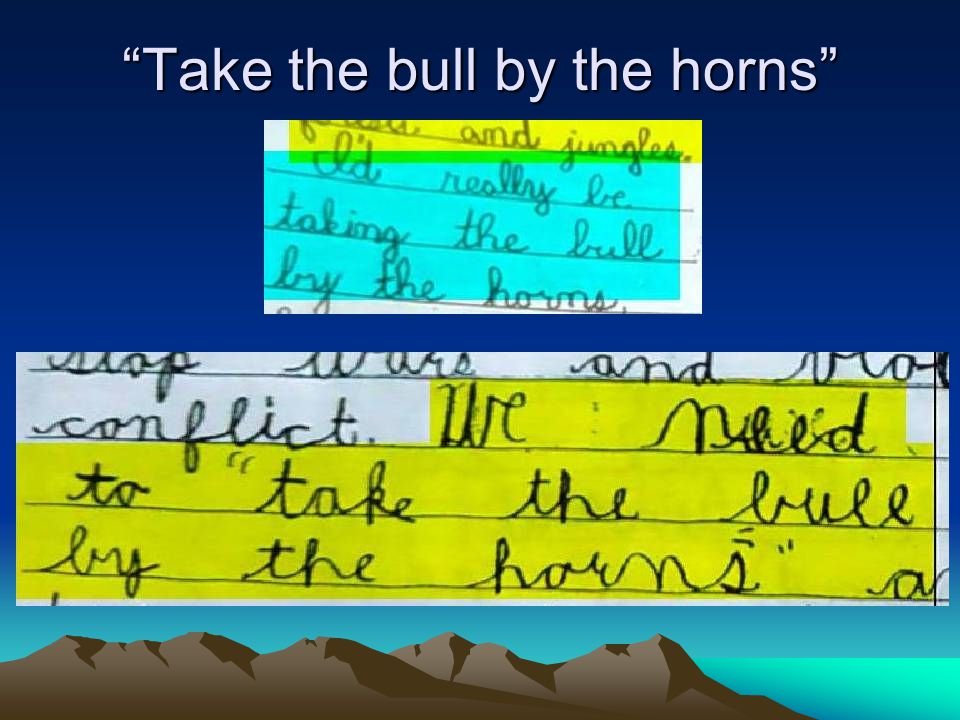 “Take the bull by the horns”
and jungles.
I'd really be
taking the bull
by the horns.
stop wars and
conflict. We need
to "take the bull
by the horns"